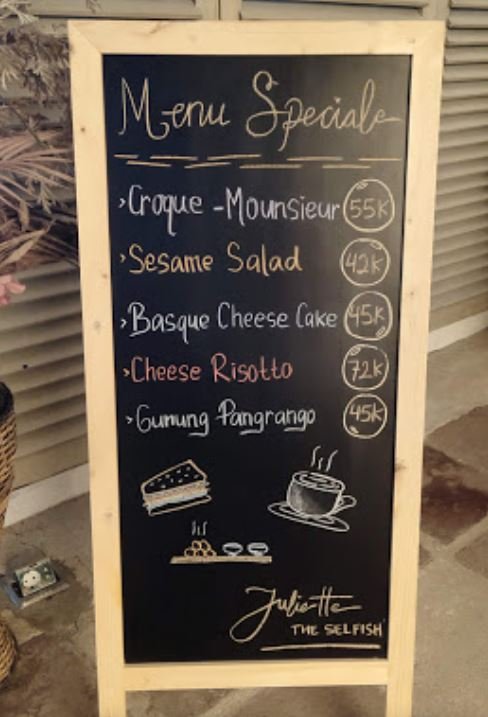 Menu Speciale
›Croque -Mounsieur 55K
›Sesame Salad 42K
›Basque Cheese Cake 45K
›Cheese Risotto 72K
›Gunung Pangrango 45K
Juliette
THE SELFISH